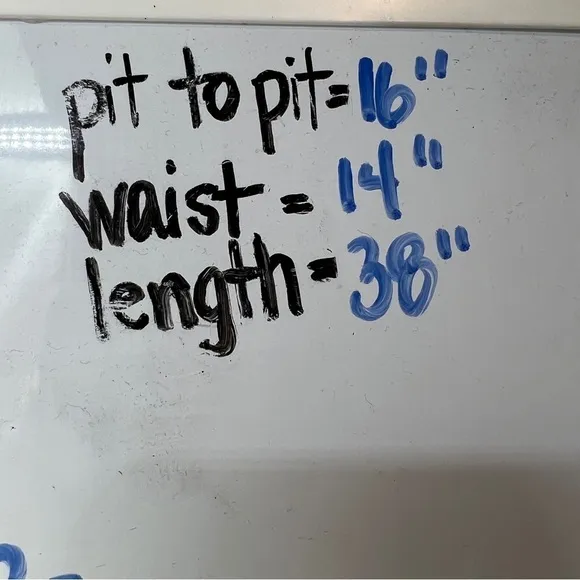 pit to pit=16"
waist = 14"
length=38"